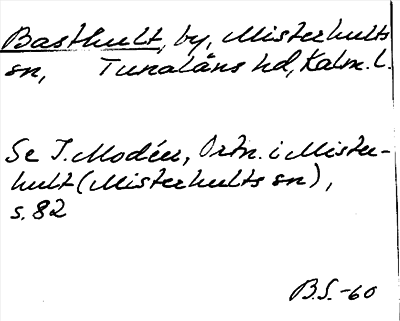 Basthult, by, Misterhults
sn, Tunaläns hd, Kalm. l.
Se I. Modéer, Ortn. i Mister-
hult (Misterhults sn),
s. 82
B.S. -60